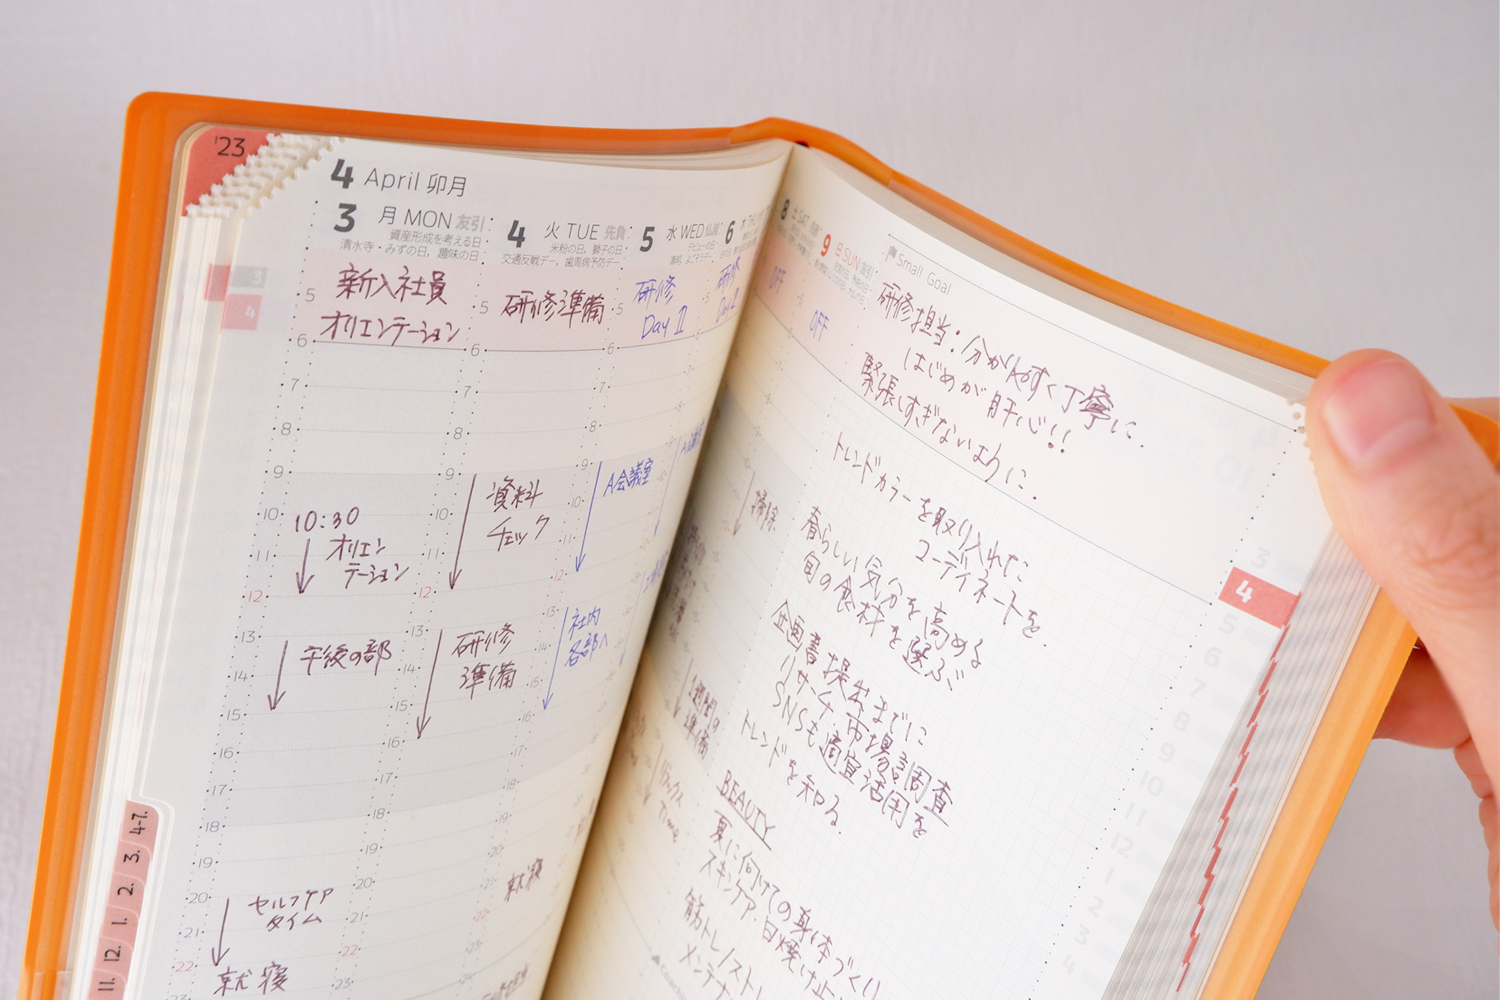 '23
4 April 卯月
3 月 MON 友引
資産形成を考える日
清水寺・みずの日, 趣味の日
4 火 TUE 先負
米粉の日, 獅子の日
交通反戦デー, 歯周病予防デー
5 水 WED 仏滅
デビューの日
6
8 土 SAT
9 日 SUN 友引
Small Goal
新入社員
オリエンテーション
研修準備
研修
Day II
研修
OFF
OFF
10:30
オリエン
テーション
午後の部
セルフケア
タイム
就寝
資料
チェック
研修
準備
就寝
A会議室
社内
各部へ
掃除
1週間の
準備
リラックス
Time
研修担当:分かりやすく丁寧に.
はじめが肝心!!
緊張しすぎないように.
トレンドカラーを取り入れた
コーディネートを
春らしい気分を高める
旬の食材を選ぶ
企画書提出までに
リサーチ・市場調査
SNSも適宜活用を
トレンドを知る.
BEAUTY
夏に向けての身体づくり
スキンケア・日焼け止
筋トレ/ストレ
メンテナ
3
4
5
6
7
8
9
10
11
12
1
2
3
4
4-7.
3.
2.
1.
12.
11.